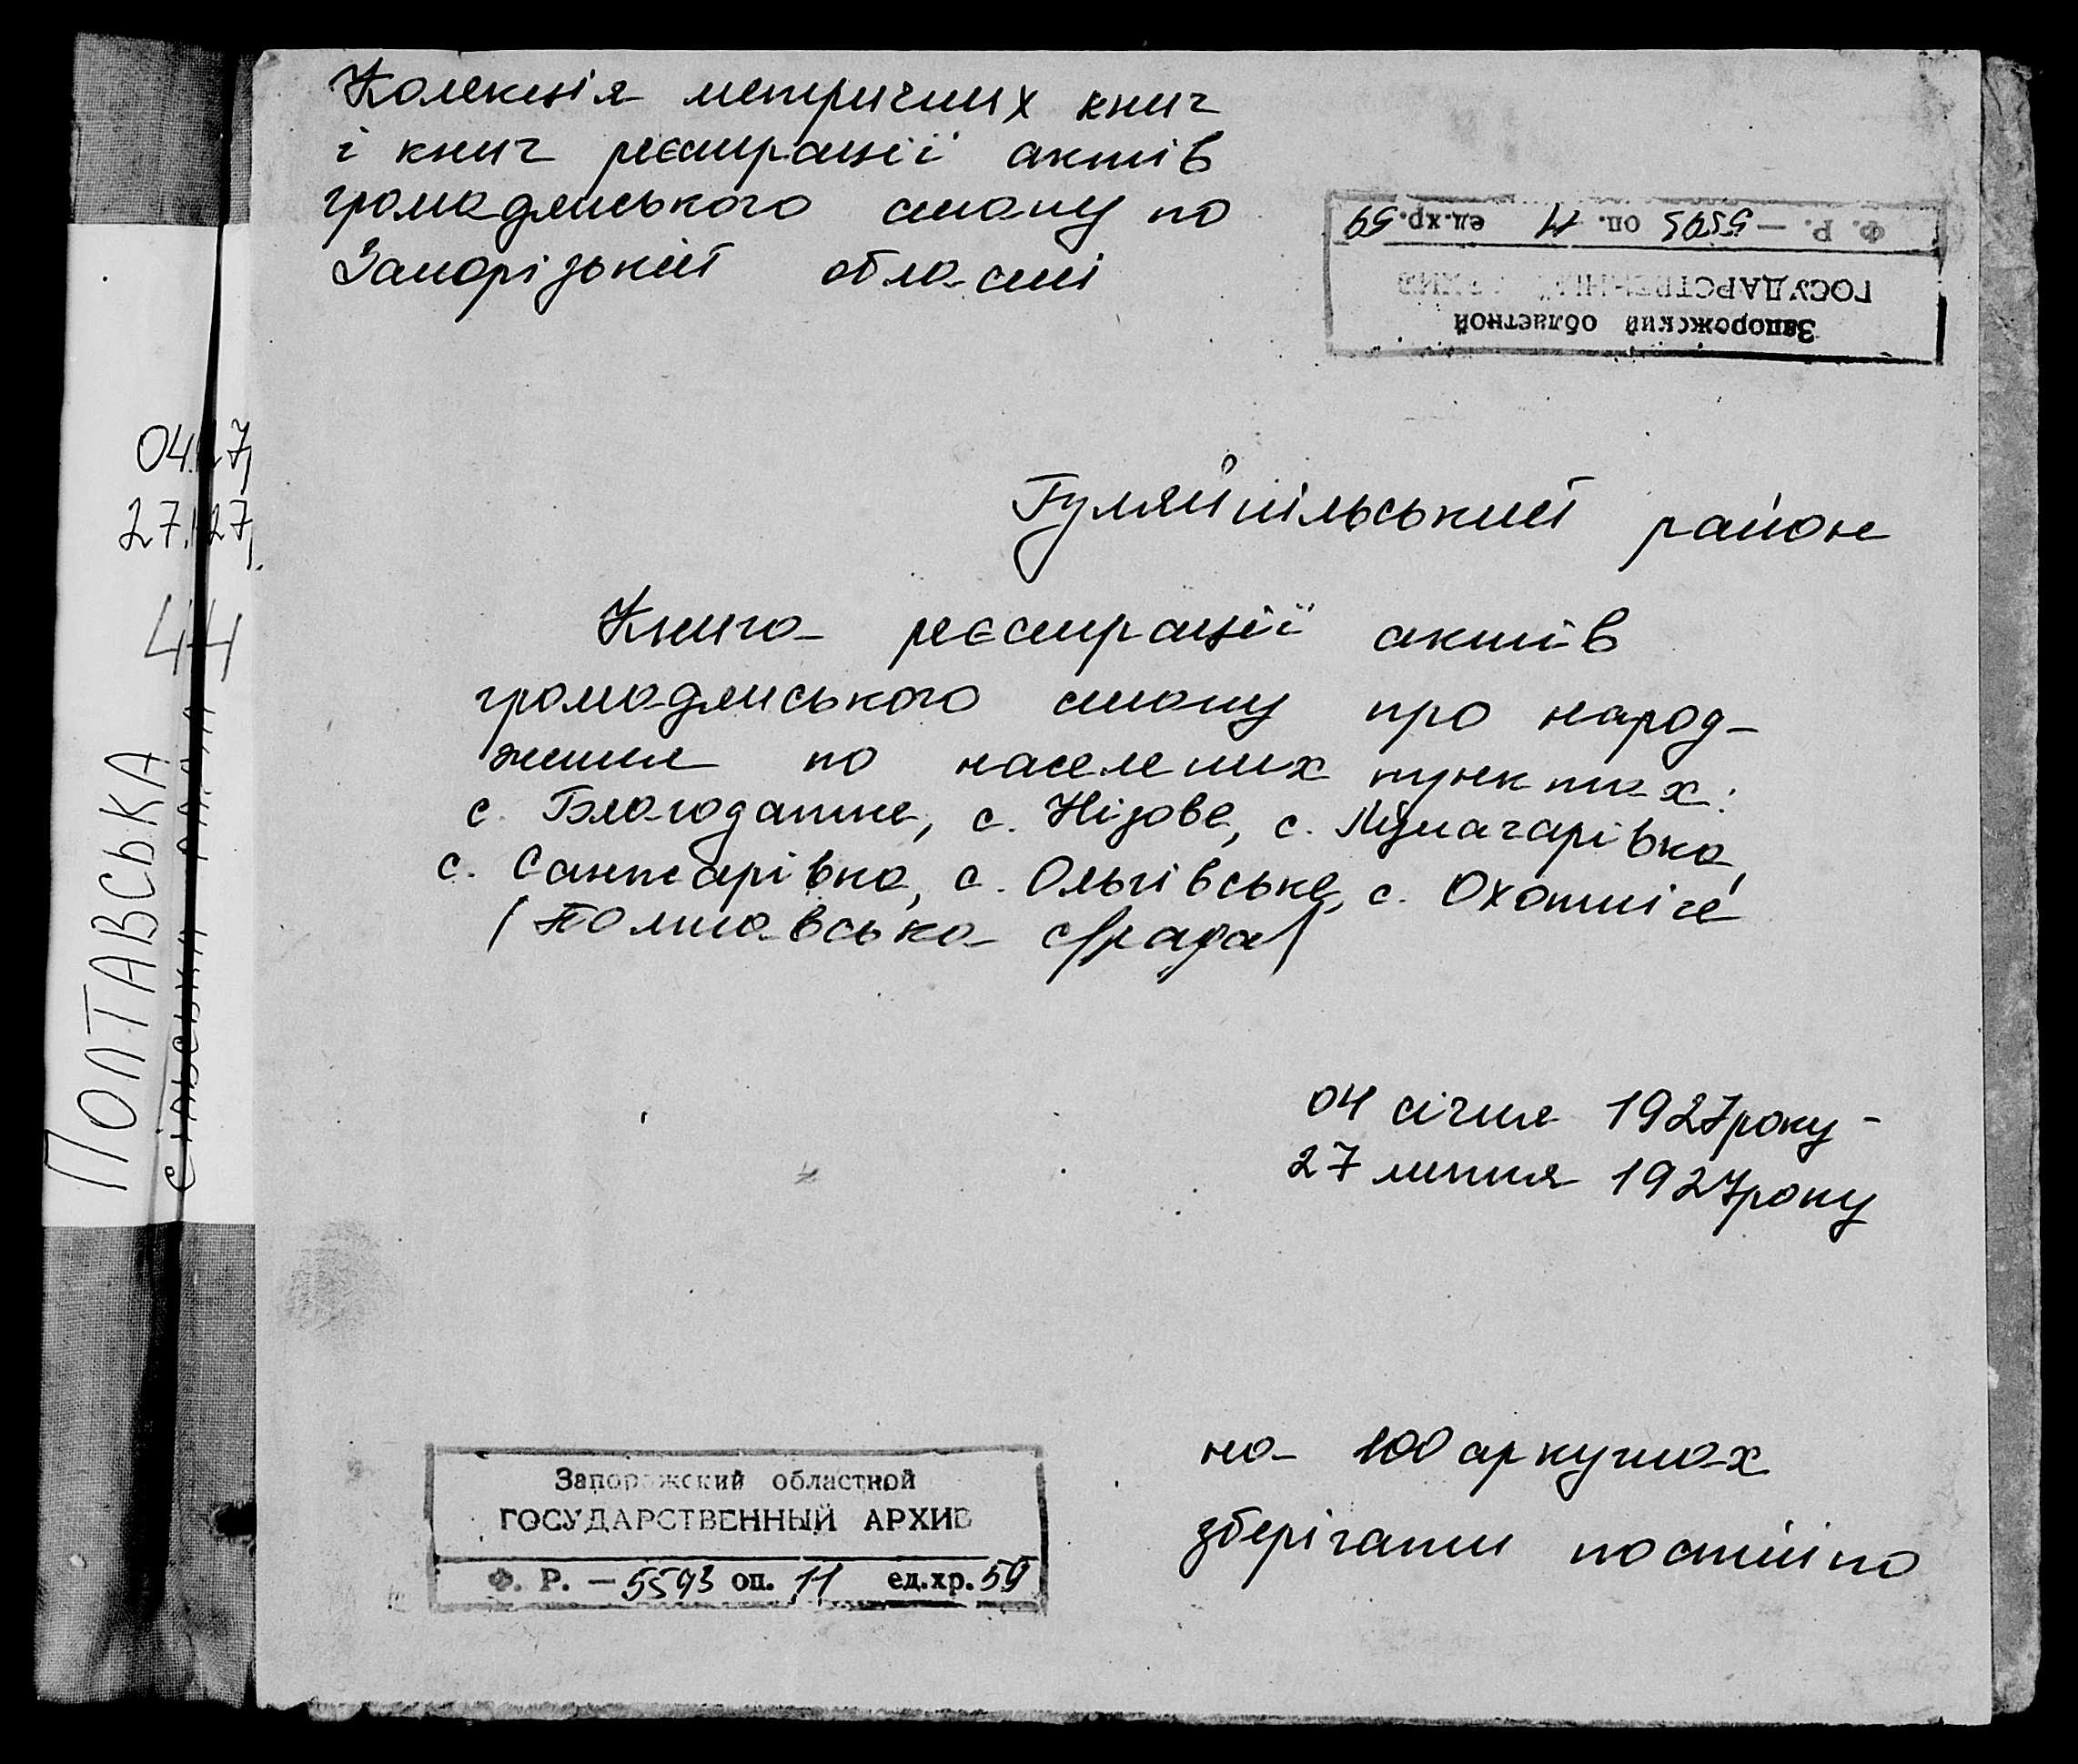 Колекція метричних книг
і книг реєстрації актів
громадянського стану по
Запорізькій області
Запорожский областной
ГОСУДАРСТВЕННЫЙ АРХИВ
Ф. Р. — 5593 оп. 11 ед.хр. 59
Гуляйпільський район
Книга реєстрації актів
громадянського стану про народ-
ження по населених пунктах:
с. Благодатне, с. Нізове, с.
с. Санжарівка, с. Ольгівське, с. Охотніче
(Полтавська с/рада)
04 січня 1927року -
27 липня 1927року
на 100 аркушах
зберігати постійно
Запорожский областной
ГОСУДАРСТВЕННЫЙ АРХИВ
Ф. Р. — 5593 оп. 11 ед.хр. 59
04. 27,
27. 27,
44
ПОЛТАВСЬКА
СІЛЬСЬКА РАДА